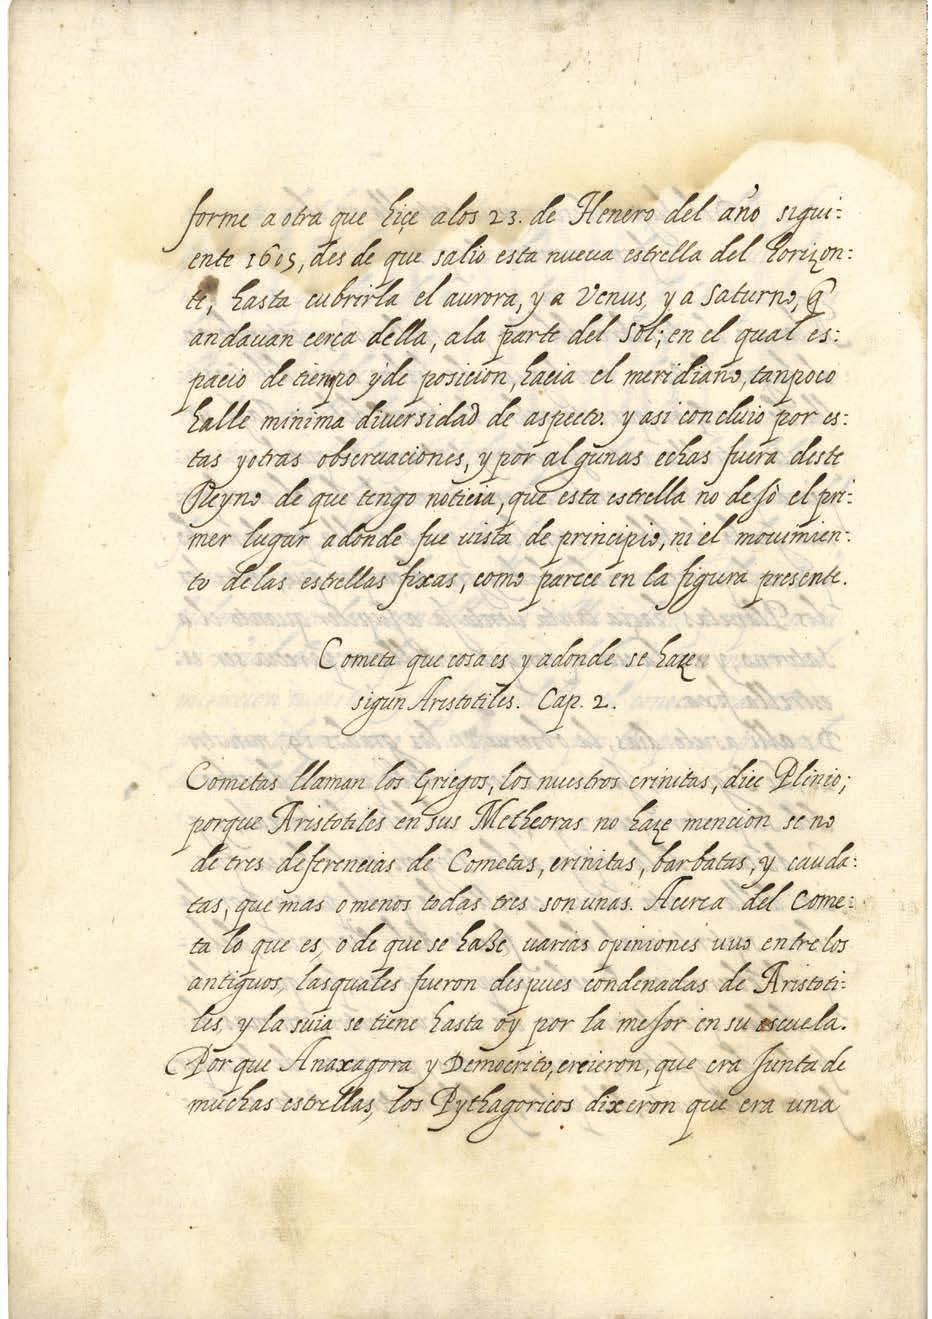 forme a otra que hiçe alos 23. de Henero del año sigui:
ente 1605, des de que salio esta nueva estrella del horizon:
te, hasta cubrirla el aurora, y a Venus, y a Saturno, q̃
andauan cerca della, ala parte del Sol; en el qual es:
pacio de tiempo y de posicion, hacia el meridiano, tanpoco
halle minima diversidad de aspecto. y asi concluio por es:
tas y otras obseruaciones, y por algunas echas fuera deste
Reyno de que tengo noticia, que esta estrella no dejò el pri:
mer lugar adonde fue vista de principio, ni el mouimien:
to delas estrellas fixas, como parece en la figura presente.
Cometa que cosa es y adonde se haze
sigun Aristotiles. Cap. 2.
Cometas llaman los Griegos, los nuestros crinitas, dice Plinio;
porque Aristotiles en sus Metheoras no haze mencion se no
de tres deferencias de Cometas, crinitas, barbatas, y cauda:
tas, que mas o menos todas tres son unas. Acerca del Come:
ta lo que es, o de que se haße, varias opiniones uuo entre los
antiguos, lasquales fueron despues condenadas de Aristoti:
les, y la suia se tiene hasta oy por la mejor en su escuela.
Porque Anaxagora y Democrito, creieron, que era junta de
muchas estrellas, los Pythagoricos dixeron que era una